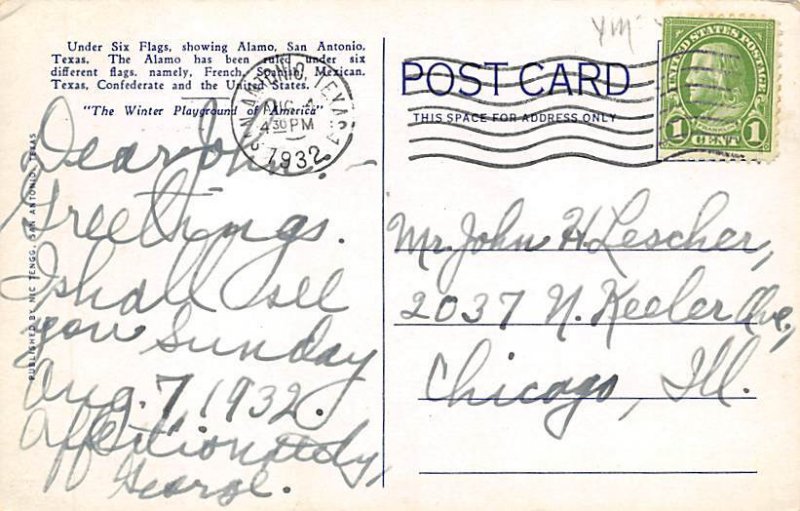 Under Six Flags, showing Alamo, San Antonio,
Texas. The Alamo has been ruled under six
different flags, namely, French, Spanish, Mexican,
Texas, Confederate and the United States.
"The Winter Playground of America"
SAN ANTONIO, TEXAS 1
AUG 4
4 30 PM
1932
POST CARD
THIS SPACE FOR ADDRESS ONLY
UNITED STATES POSTAGE
FRANKLIN
1 CENT 1
PUBLISHED BY NIC TENGG, SAN ANTONIO, TEXAS
Dear John:—
Greetings.
I shall see
you Sunday
Aug. 7, 1932.
Affectionately,
George.
Mr. John H. Lescher,
2037 N. Keeler Ave.,
Chicago, Ill.